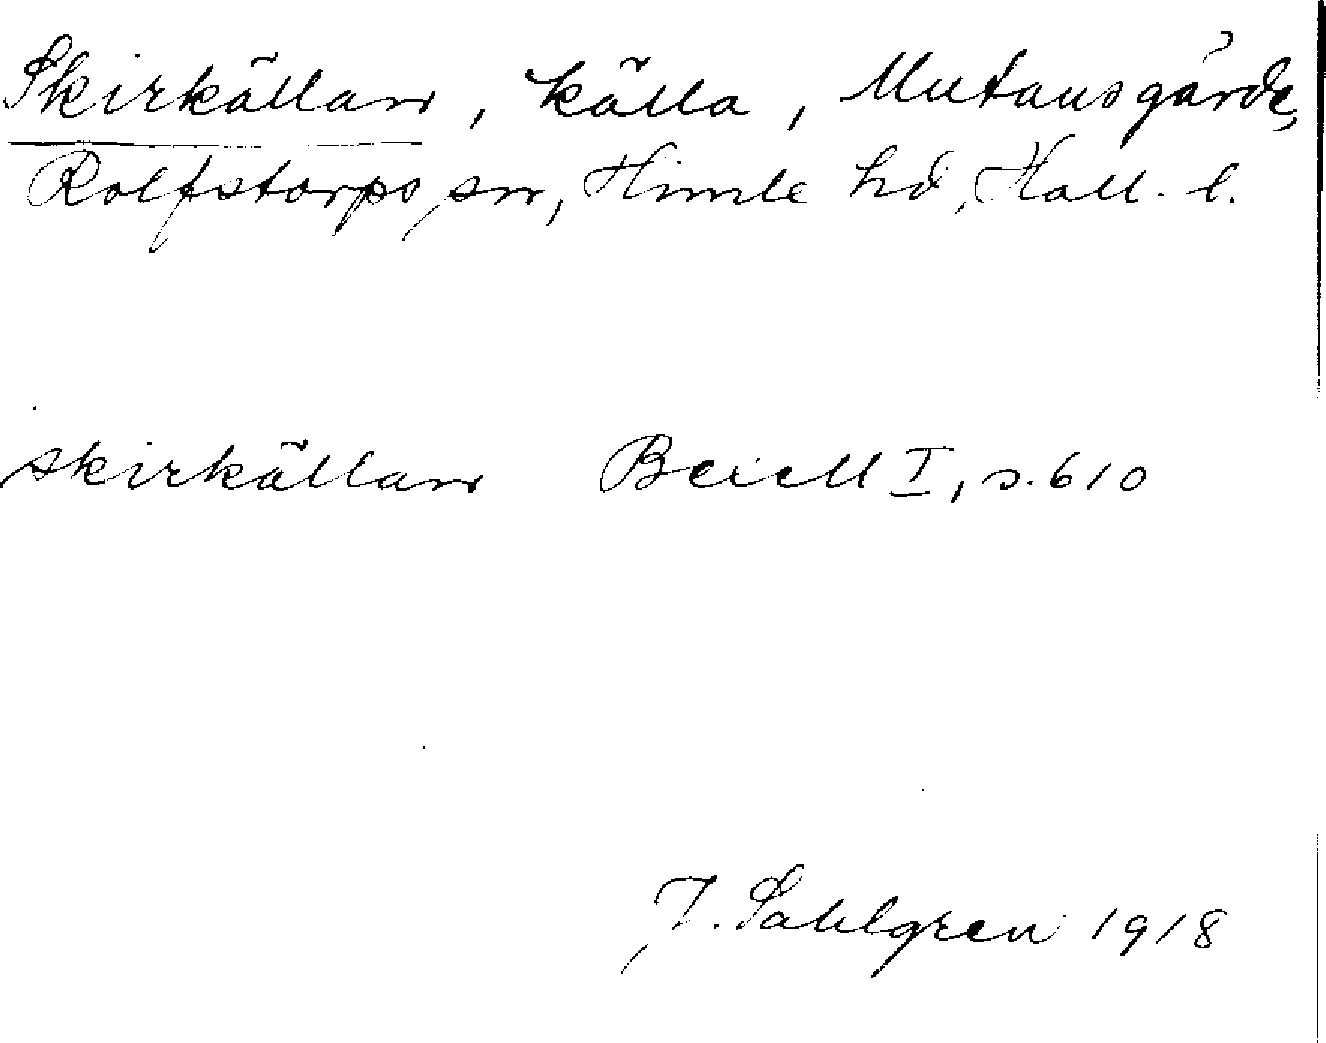 Skirkällan, källa, Mutansgårde,
Rolfstorps sn, Himle hd, Hall. l.
skirkällan Bexell I, s. 610
J. Sahlgren 1918